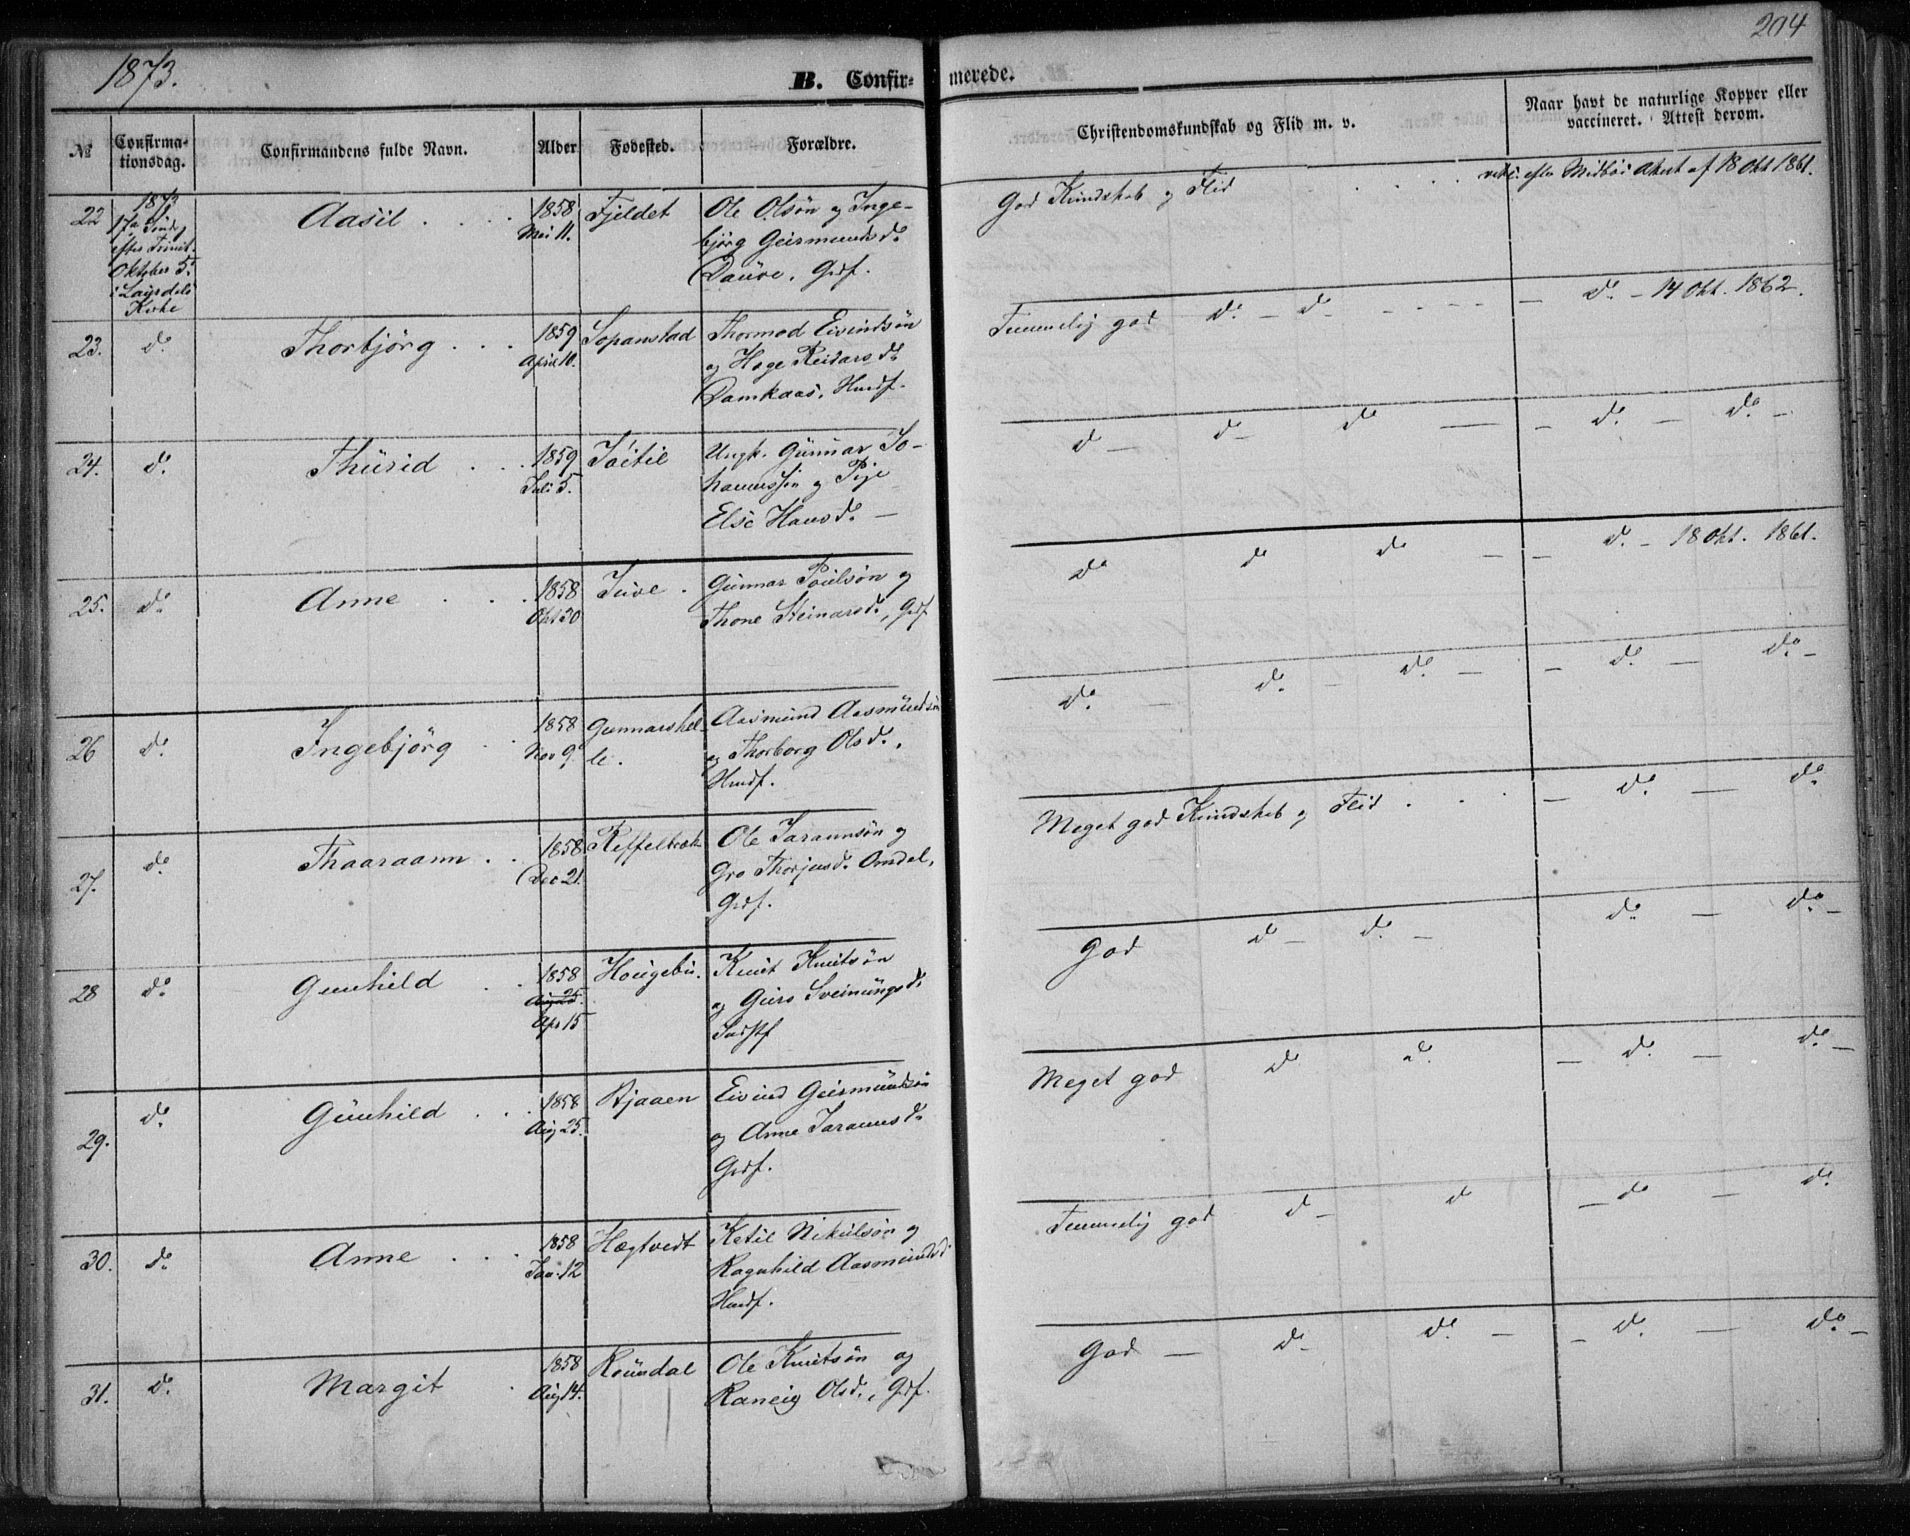 1873.
B. Confir-
merede.
204
№
Confirma-
tionsdag.
Confirmandens fulde Navn.
Alder
Fødested.
Forældre.
Christendomskundskab og Flid m. v.
Naar havt de naturlige Kopper eller
vaccineret. Attest derom.
22
1873
17de Sønd
efter Trinit.
Oktober 5.
i Laurdals
Kirke
Aasil . . . .
1858
Mai 11.
Fjeldet
Ole Olsøn og Inge-
bjørg Geirmundsd.
Dauve. Grdf.
God Kundskab og Flid . . . .
efter Midbøs Attest af 18 Okt 1861.
23.
do
Thorbjörg . . .
1859
April 10.
Sopanstad
Thormod Eivindsøn
og Hæge Reidarsd.
Damkaas. Husf.
Temmelig god do - do - - - -
do - 14 Okt. 1862.
24.
do
Thurid . . .
1859
Juli 5.
Ungk. Gunnar Jo-
hannessøn og Pige
Else Hansd. —
do — do — do —
— do — do —
25.
do
Anne . . .
1858
Okt 30
Juve .
Gunnar Poulsøn og
Thone Steinarsd., Grdf
do do do —
— do - 18 Okt. 1861.
26
do
Ingebjörg . .
1858
Nov 9.
Gunnarshel-
le.
Aasmund Aasmundsøn
og Thorborg Olsd.,
Husf.
do — do — do —
— do — do —
27.
do
Thaaraann . .
1858
Dec 21.
Reffelbrek
Ole Taraunsøn og
Gro Thorjusd. Omdal,
Grdf.
Meget god Kundskab og Flid . . .
— do — do
28
do
Gunhild . .
1858
Aug 25.
Apr 15
Hougebu.
Knut Knutsøn
og Guro Sveinungsd.
God do — do —
do — do —
29.
do
Gunhild . . .
1858
Aug 25.
Bjaaen
Eivind Geirmundsøn
og Anne Taraunsd.
Grdf.
Meget god do do
— do — do —
30.
do
Anne . . .
1858
Jan. 12
Hægtvedt
Ketil Nikulsøn og
Ragnhild Aasmundsd.
Husf.
Temmelig god do — do
— do — do
31.
do
Margit .
1858
Aug 14.
Roundal
Ole Knutsøn og
Raneig Olsd., Grdf.
God — do — do —
— do — do —